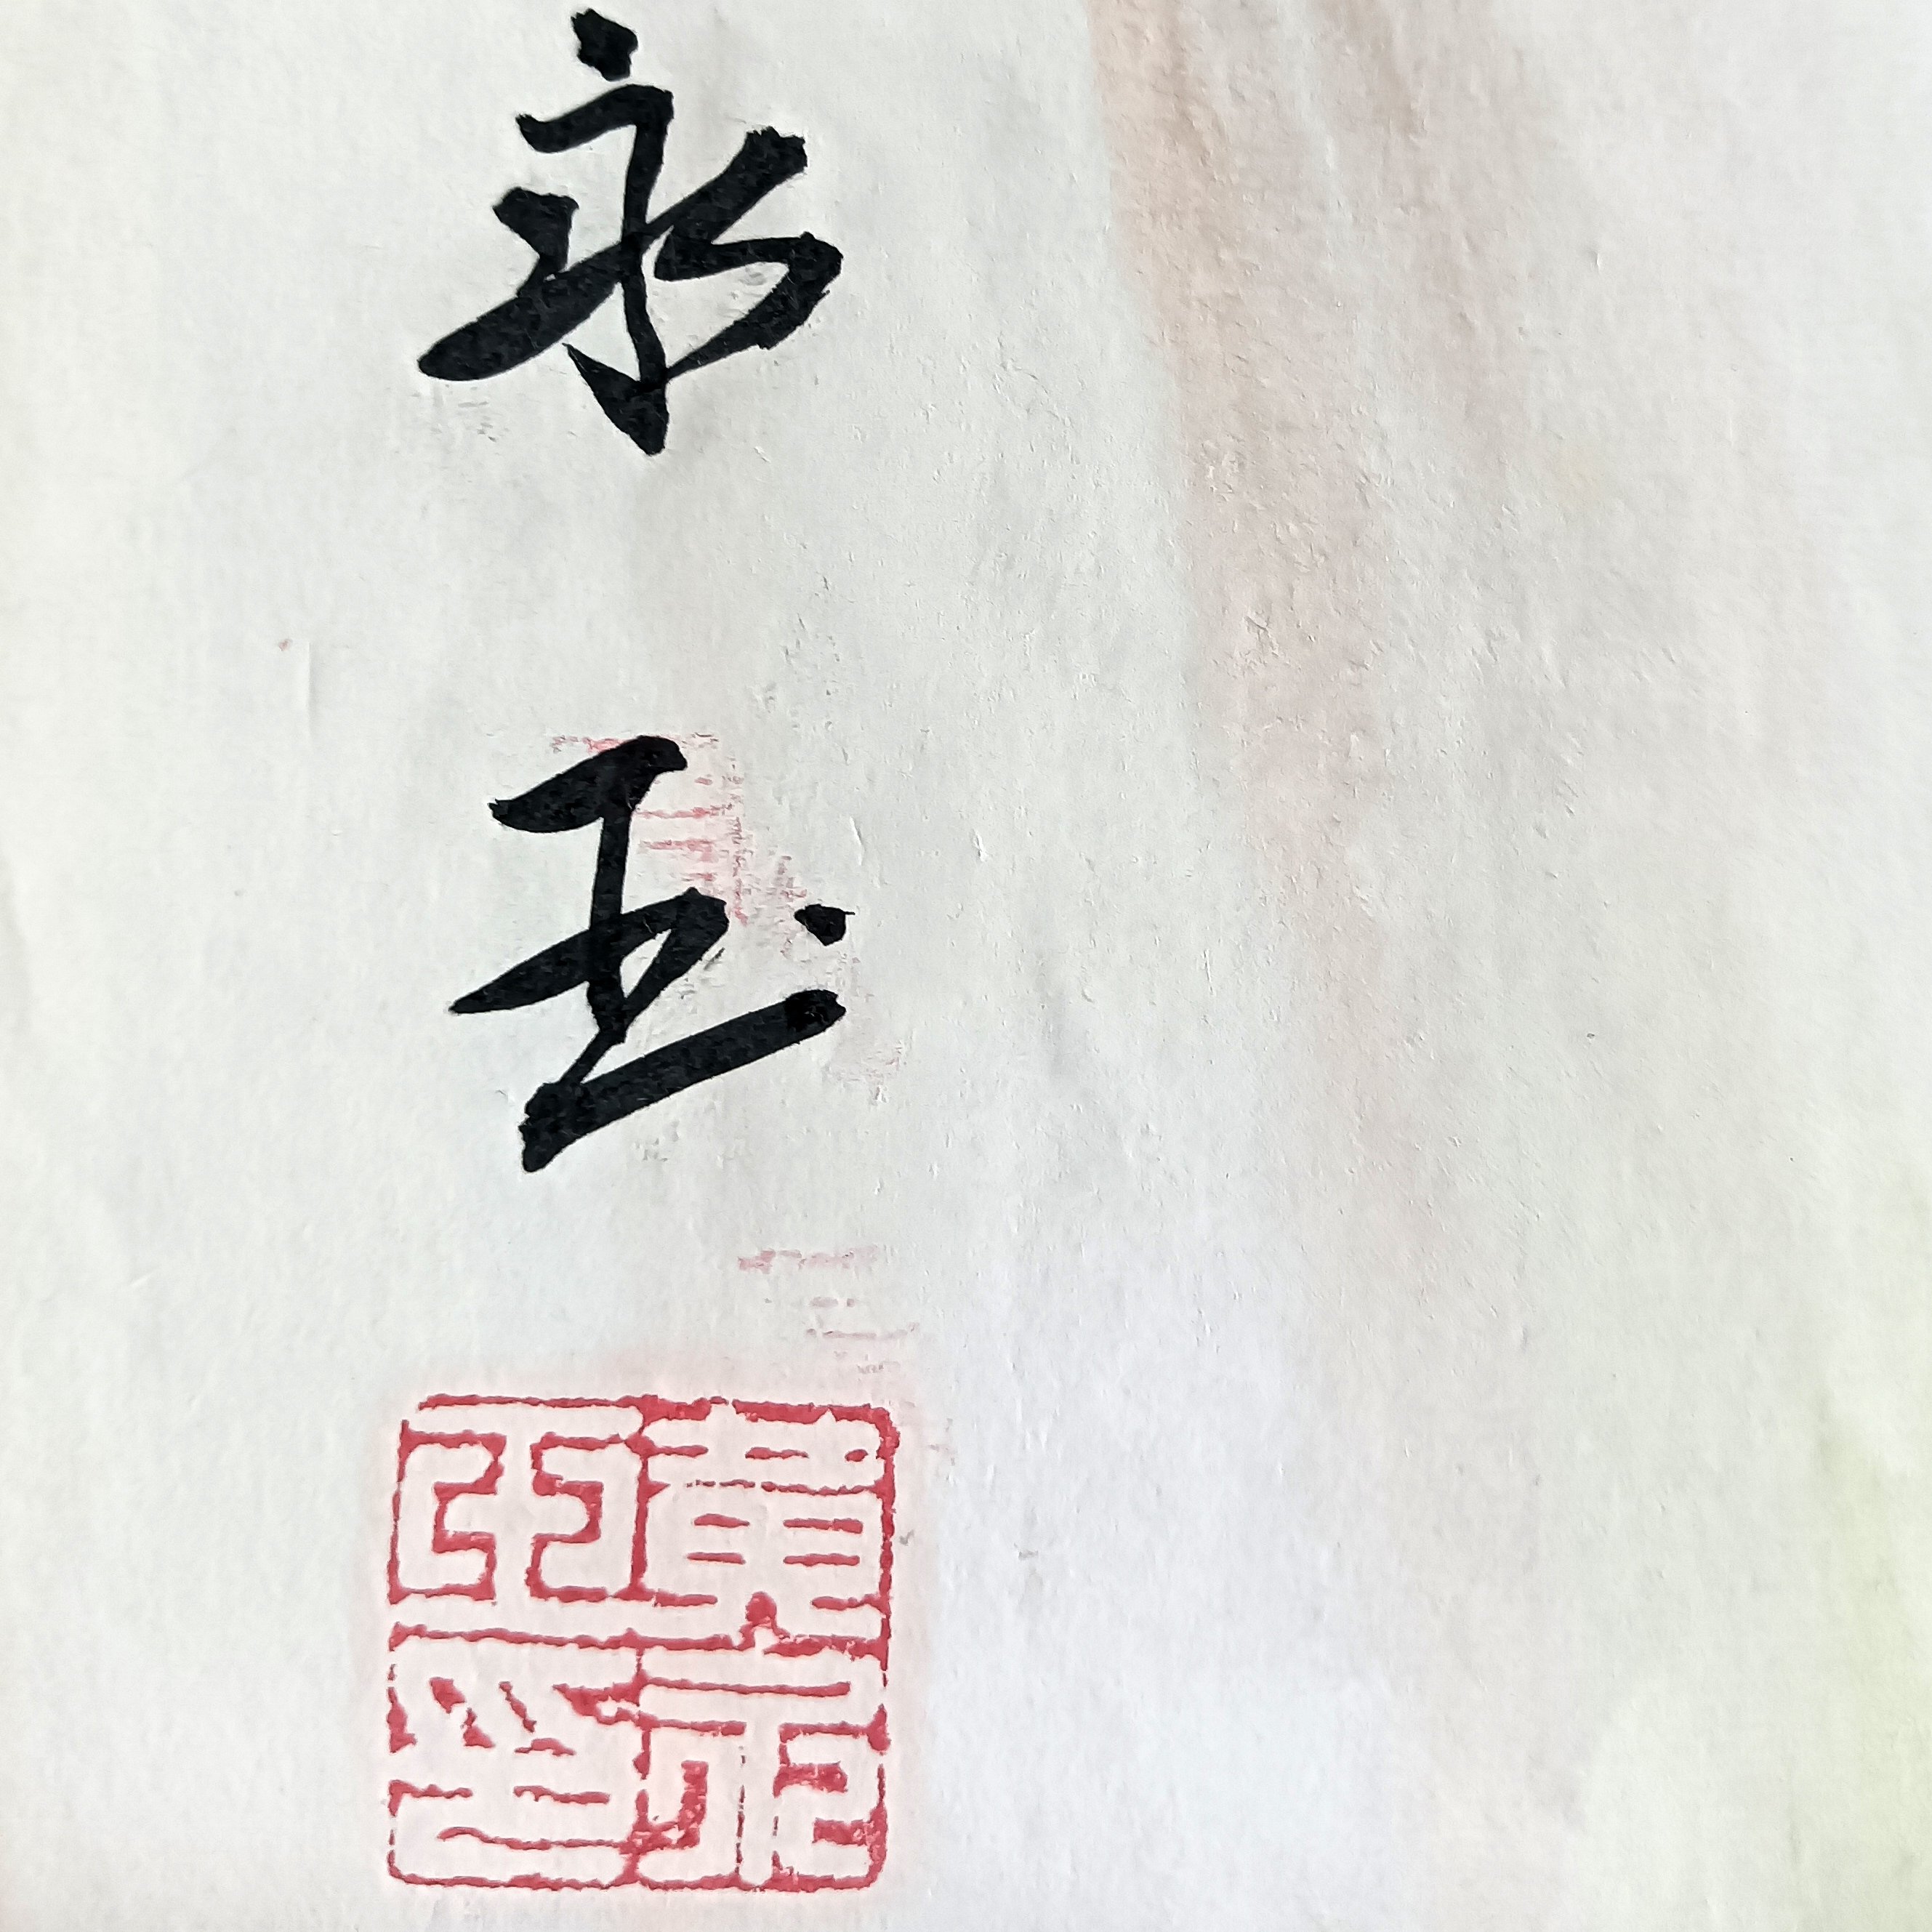 永
玉
黄永玉印